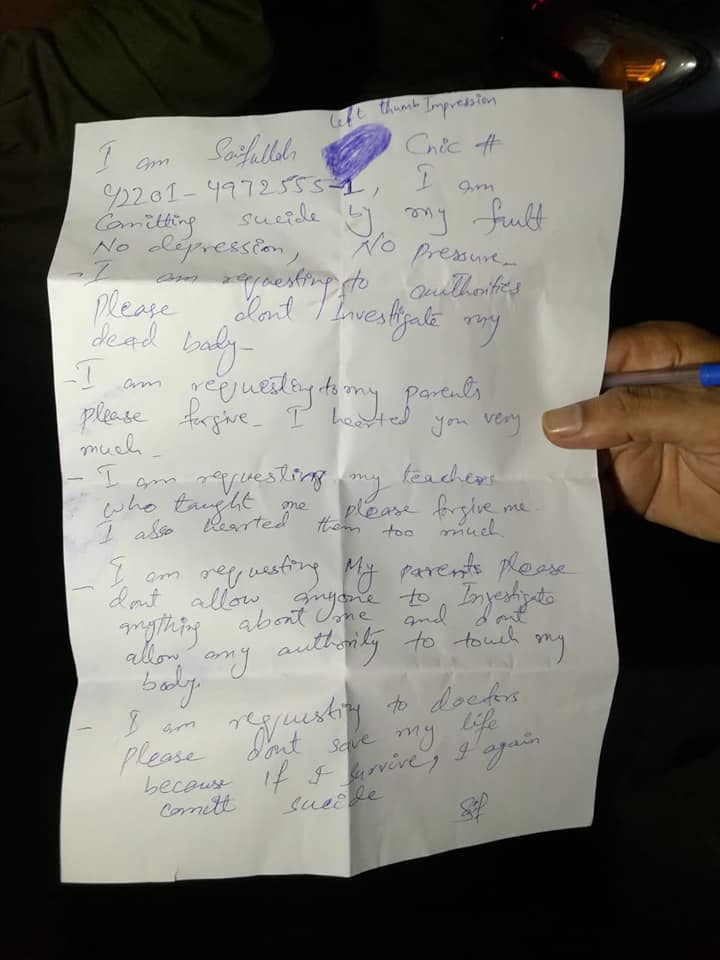 left thumb Impression
I am Saifullah Cnic #
42201-4972555-1, I am
Comitting sucide by my fault
No depression, No pressure_
- I am requesting to authorities
please dont Investigate my
dead body_
- I am requesting to my parents
please forgive_ I hearted you very
much_
- I am requesting my teachers
who taught me please forgive me.
I also hearted them too much
- I am requesting My parents please
dont allow anyone to Investigate
anything about me and dont
allow any authority to touch my
body.
- I am requesting to doctors
please dont save my life
because if I survive, I again
comitt sucide